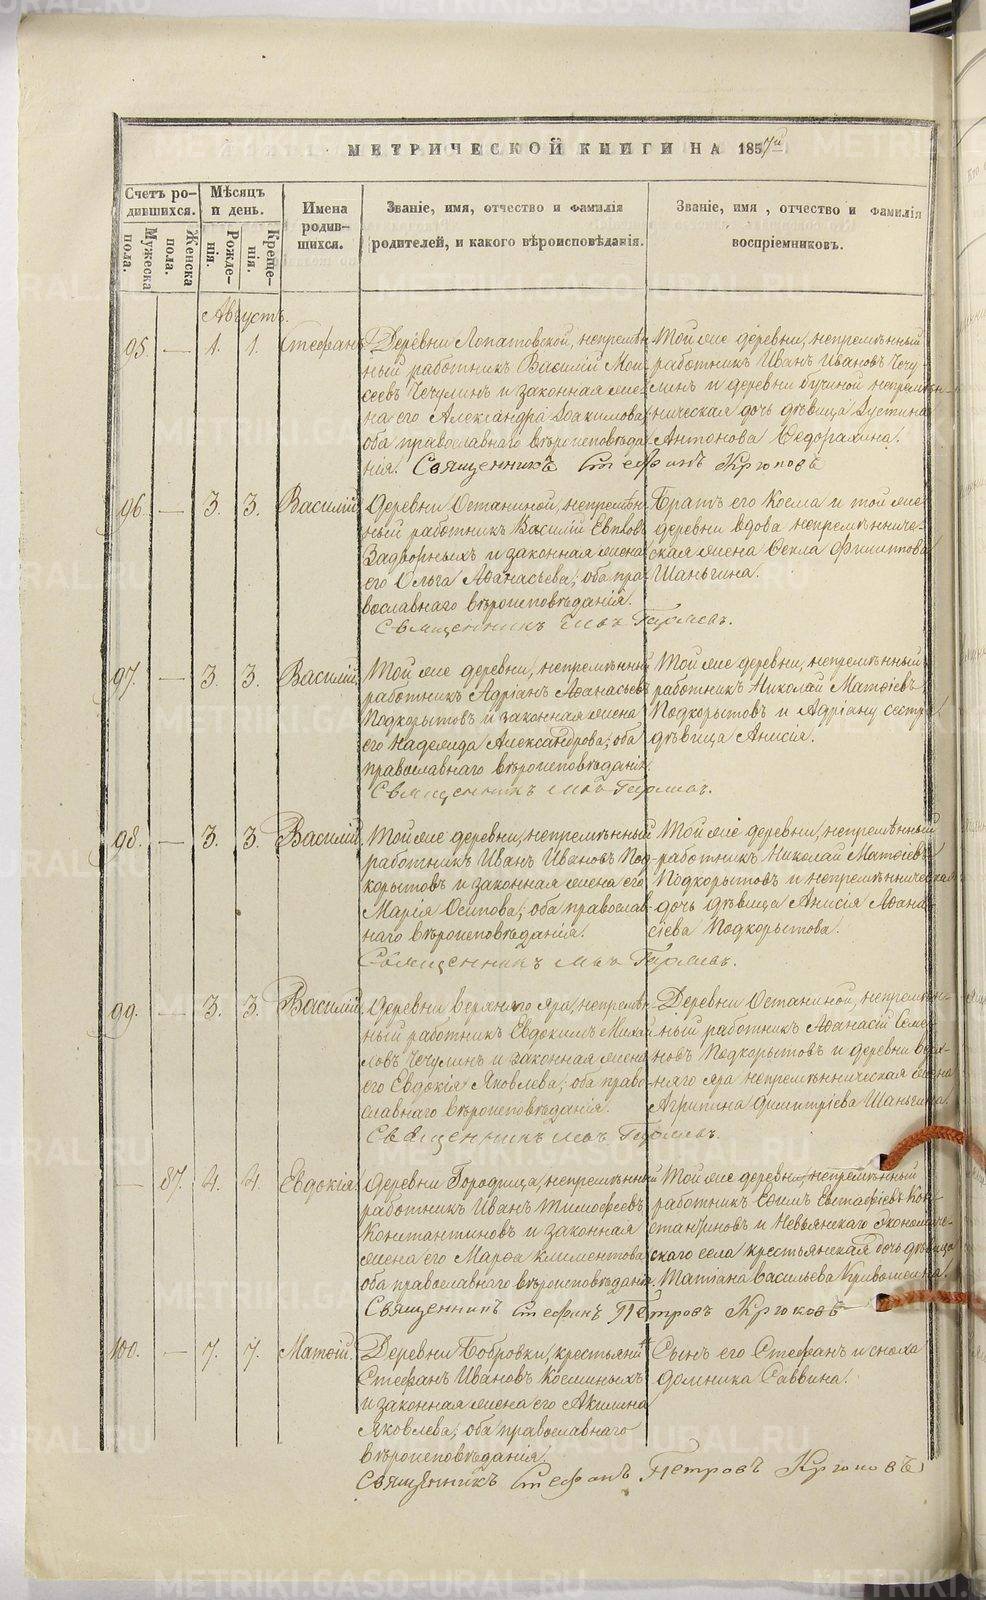 МЕТРИЧЕСКОЙ КНИГИ НА 1857й
Счетъ ро-
дившихся.
Мужеска
пола.
Женска
пола.
Мѣсяцъ
и день.
Рожде-
нія.
Креще-
нія.
Имена
родив-
шихся.
Званіе, имя, отчество и фамилія
родителей, и какого вѣроисповѣданія.
Званіе, имя, отчество и фамилія
воспріемниковъ.
Августъ.
95. — 1. 1. Стефанъ
Деревни Лопатовской, непремѣн-
ный работникъ Василій Мои-
сеевъ Чечулинъ и законная же-
на его Александра Іоакимова,
оба православнаго вѣроисповѣда-
нія.
Той же деревни, непремѣнный
работникъ Иванъ Ивановъ Чечу-
линъ и деревни Бучиной непремѣн-
ническая дочь дѣвица Іустина
Антонова Федорахина.
Священникъ Стефанъ Крюковъ
96. — 3. 3. Василій
Деревни Останиной, непремѣн-
ный работникъ Василій
Задворныхъ и законная жена
его Ольга Аѳанасьева, оба пра-
вославнаго вѣроисповѣданія.
Братъ его Косма и той же
деревни вдова непремѣнниче-
ская жена Ѳекла Филиппова
Шаньгина.
Священникъ
97. — 3. 3. Василій
Той же деревни, непремѣнный
работникъ Адріанъ Аѳанасьевъ
Подкорытовъ и законная жена
его Надежда Александрова, оба
православнаго вѣроисповѣданія.
Той же деревни, непремѣнный
работникъ Николай Матѳіевъ
Подкорытовъ и Адріану сестра,
дѣвица Анисія.
Священникъ
98. — 3. 3. Василій
Той же деревни, непремѣнный
работникъ Иванъ Ивановъ Под-
корытовъ и законная жена его
Марія Осипова, оба православ-
наго вѣроисповѣданія.
Той же деревни, непремѣнный
работникъ Николай Матѳіевъ
Подкорытовъ и непремѣнническая
дочь дѣвица Анисія Аѳана-
сіева Подкорытова.
Священникъ
99. — 3. 3. Василій
Деревни Верхняго яра, непремѣн-
ный работникъ Евдокимъ Михай-
ловъ Чечулинъ и законная жена
его Евдокія Яковлева, оба право-
славнаго вѣроисповѣданія.
Деревни Останиной, непремѣн-
ный работникъ Аѳанасій Семе-
новъ Подкорытовъ и деревни Верх-
няго яра непремѣнническая жена
Агрипина Димитріева Шаньгина.
Священникъ
— 87. 4. 4. Евдокія.
Деревни Городища, непремѣнный
работникъ Иванъ Тимофеевъ
Константиновъ и законная
жена его Марѳа Климентова,
оба православнаго вѣроисповѣданія.
Той же деревни, непремѣнный
работникъ Ефимъ Евстафіевъ Кон-
стантиновъ и Невьянскаго Экономиче-
скаго села крестьянская дочь дѣвица
Татіана Васильева Кривошеина.
Священникъ Стефанъ Петровъ Крюковъ
100. — 7. 7. Матѳій.
Деревни Бобровки, крестьянинъ
Стефанъ Ивановъ Косминыхъ
и законная жена его Акилина
Яковлева, оба православнаго
вѣроисповѣданія.
Сынъ его Стефанъ и сноха
Домника Саввина.
Священникъ Стефанъ Петровъ Крюковъ
METRIKI.GASO-URAL.RU